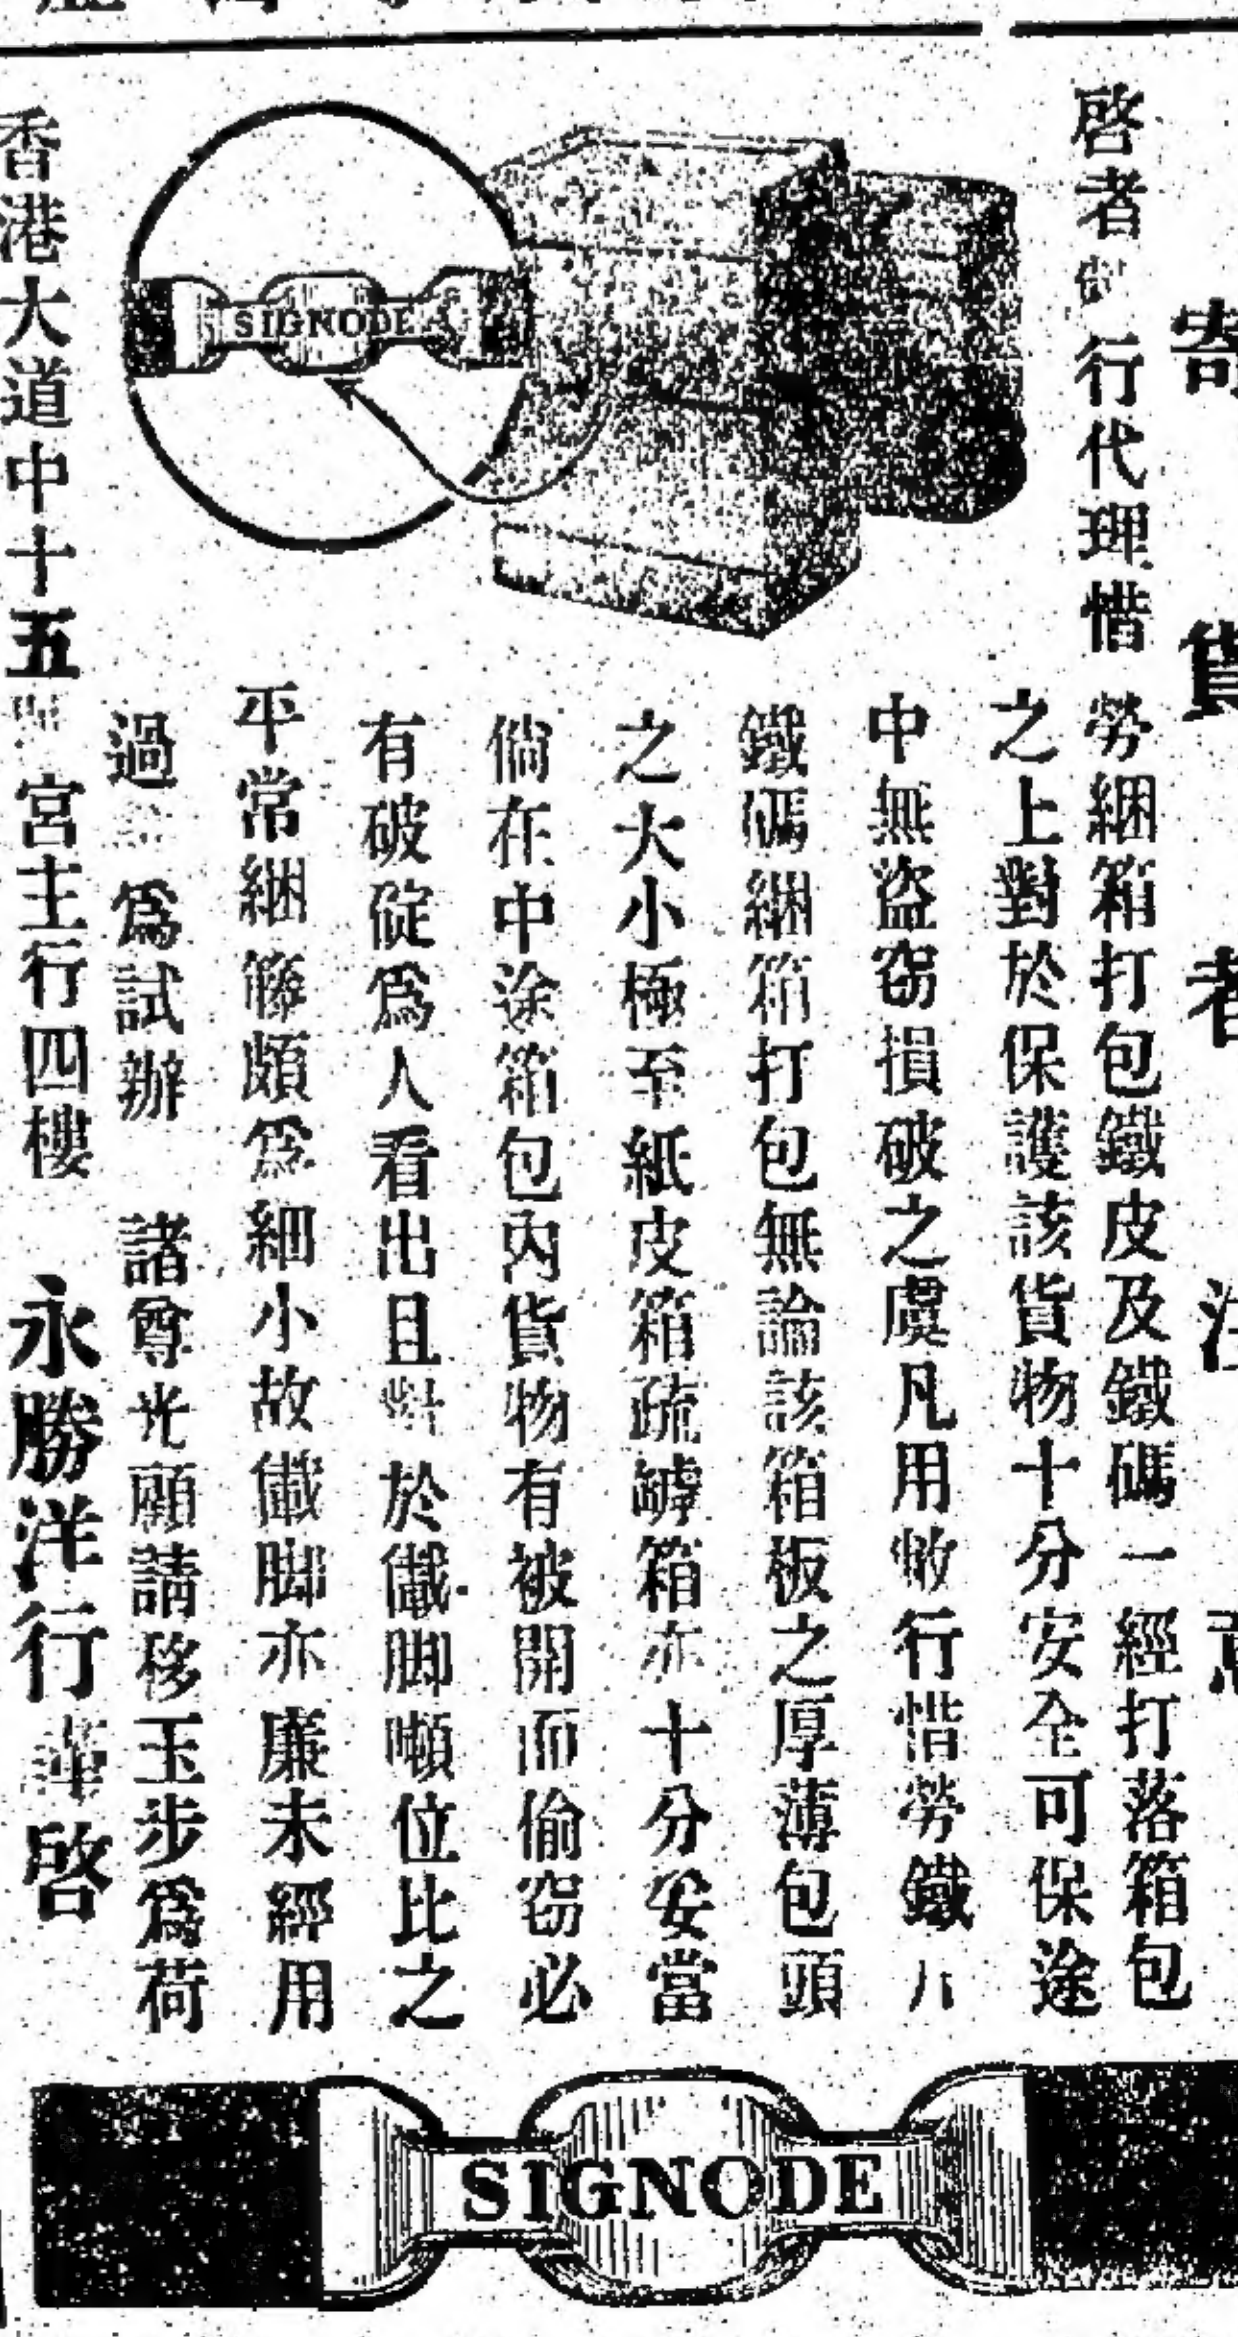 寄貨者注意
啓者敝行代理惜
勞綑箱打包鐵皮及鐵碼一經打落箱包
之上對於保護該貨物十分安全可保途
中無盜窃損破之虞凡用敝行惜勞鐵
鐵碼綑箱打包無論該箱板之厚薄包頭
之大小極至紙皮箱疏罅箱亦十分妥當
倘在中途箱包內貨物有被開而偷窃必
有破碇爲人看出且對於儎脚噸位比之
平常綑籐頗爲細小故儎脚亦廉未經用
過 爲試辦 諸尊光顧請移玉步爲荷
香港大道中十五 宮主行四樓 永勝洋行謹啓
SIGNODE
SIGNODE